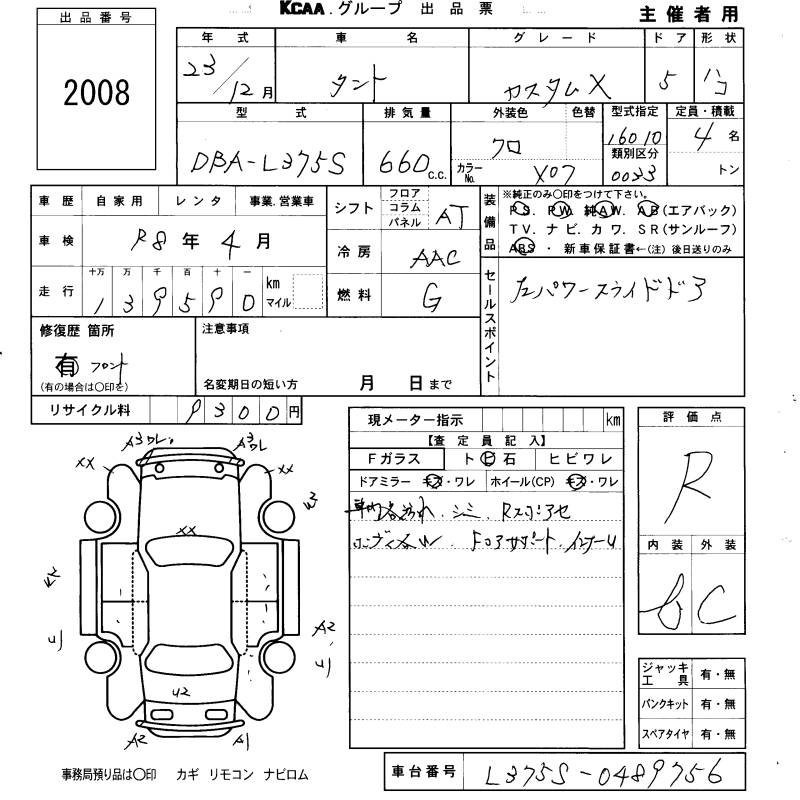 KCAA.グループ 出品票 主催者用
出品番号
2008
年式 車名 グレード ドア 形状
23/12月 タント カスタムX 5 ハコ
型式 排気量 外装色 色替 型式指定 定員・積載
DBA-L375S 660c.c. カラーNo. クロ X07 16010 4名
類別区分
0023 トン
車歴 自家用 レンタ 事業.営業車
車検 R8年4月
走行 十万 万 千 百 十 一
139590 km マイル
シフト フロア コラム パネル AT
冷房 AAC
燃料 G
装備品
※純正のみ〇印をつけて下さい。
PS. PW. 純AW. AB(エアバック)
TV. ナビ. カワ. SR(サンルーフ)
ABS ・ 新車保証書←(注) 後日送りのみ
セールスポイント
左パワースライドドア
修復歴 箇所
有 フロント
(有の場合は〇印を)
注意事項
名変期日の短い方 月 日まで
リサイクル料 9300円
現メーター指示 km
【査定員記入】
Fガラス ト ビ 石 ヒビワレ
ドアミラー キズ・ワレ ホイール(CP) キズ・ワレ
シミ.
評価点
R
内装 外装
C
A3ワレ A3ワレ
XX XX
XX
W3
A2
U2
A2 A1
ジャッキ 工具 有・無
パンクキット 有・無
スペアタイヤ 有・無
事務局預り品は〇印 カギ リモコン ナビロム
車台番号 L375S-0489756